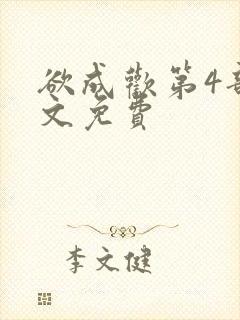 欲成歡第4部
文免費
李文健